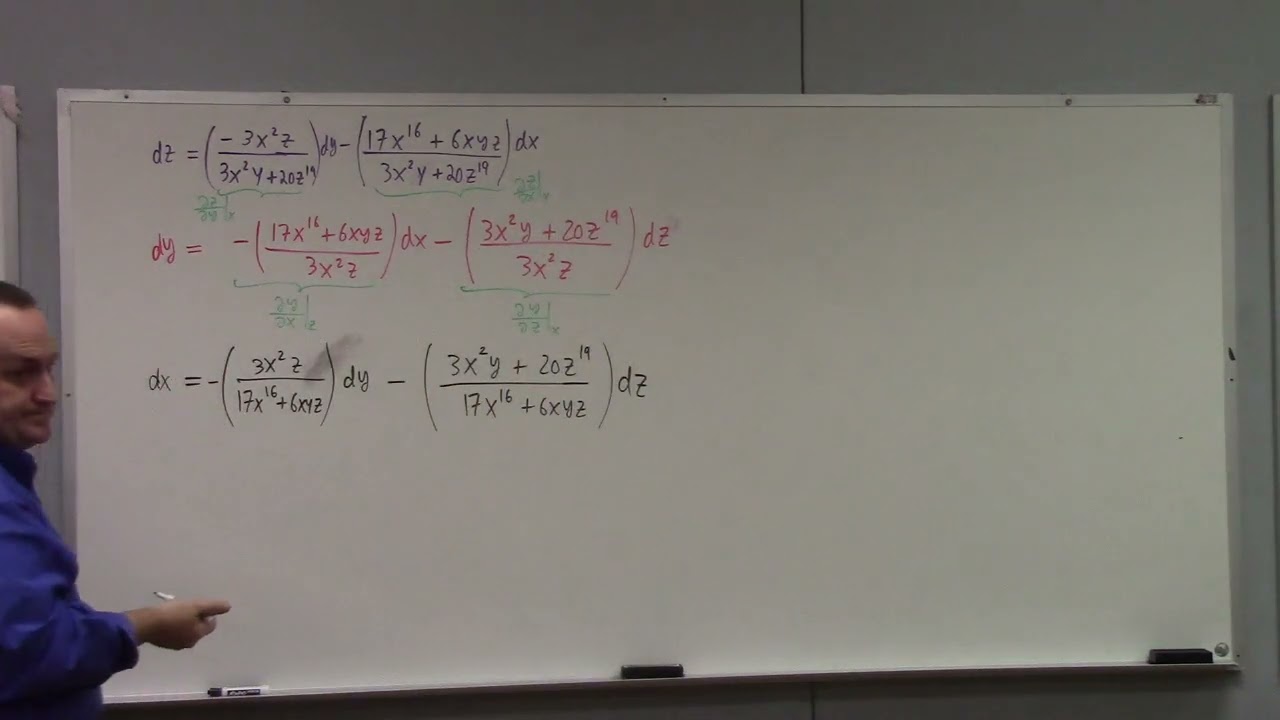 dz = (-3x²z / 3x²y+20z¹⁹)dy - (17x¹⁶ + 6xyz / 3x²y+20z¹⁹)dx
∂z/∂y|x ∂z/∂x|y
dy = -(17x¹⁶+6xyz / 3x²z)dx - (3x²y + 20z¹⁹ / 3x²z)dz
∂y/∂x|z ∂y/∂z|x
dx = -(3x²z / 17x¹⁶+6xyz)dy - (3x²y + 20z¹⁹ / 17x¹⁶ + 6xyz)dz